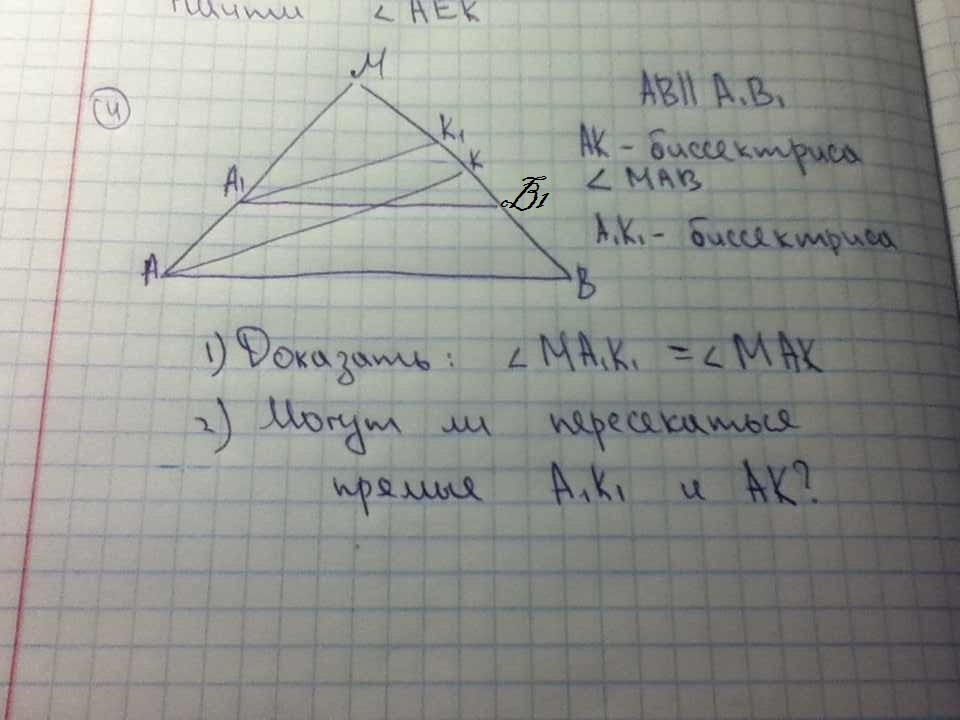 Найти ∠ AEK
(4)
M
AB || A₁B₁
K₁
AK - биссектриса
K
∠ MAB
A₁
B₁
A₁K₁ - биссектриса
A
B
1) Доказать: ∠ MA₁K₁ = ∠ MAK
2) Могут ли пересекаться
прямые A₁K₁ и AK?